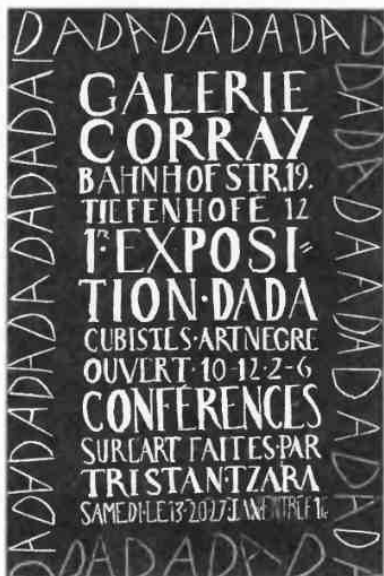 DADADADADADA
GALERIE
CORRAY
BAHNHOFSTR.19.
TIEFENHOFE 12
1RE EXPOSI=
TION·DADA
CUBISTES·ARTNEGRE
OUVERT·10-12·2-6
CONFÉRENCES
SUR L'ART FAITES·PAR
TRISTAN·TZARA
SAMEDI·LE 13·20 27 JANV ENTRÉE 1